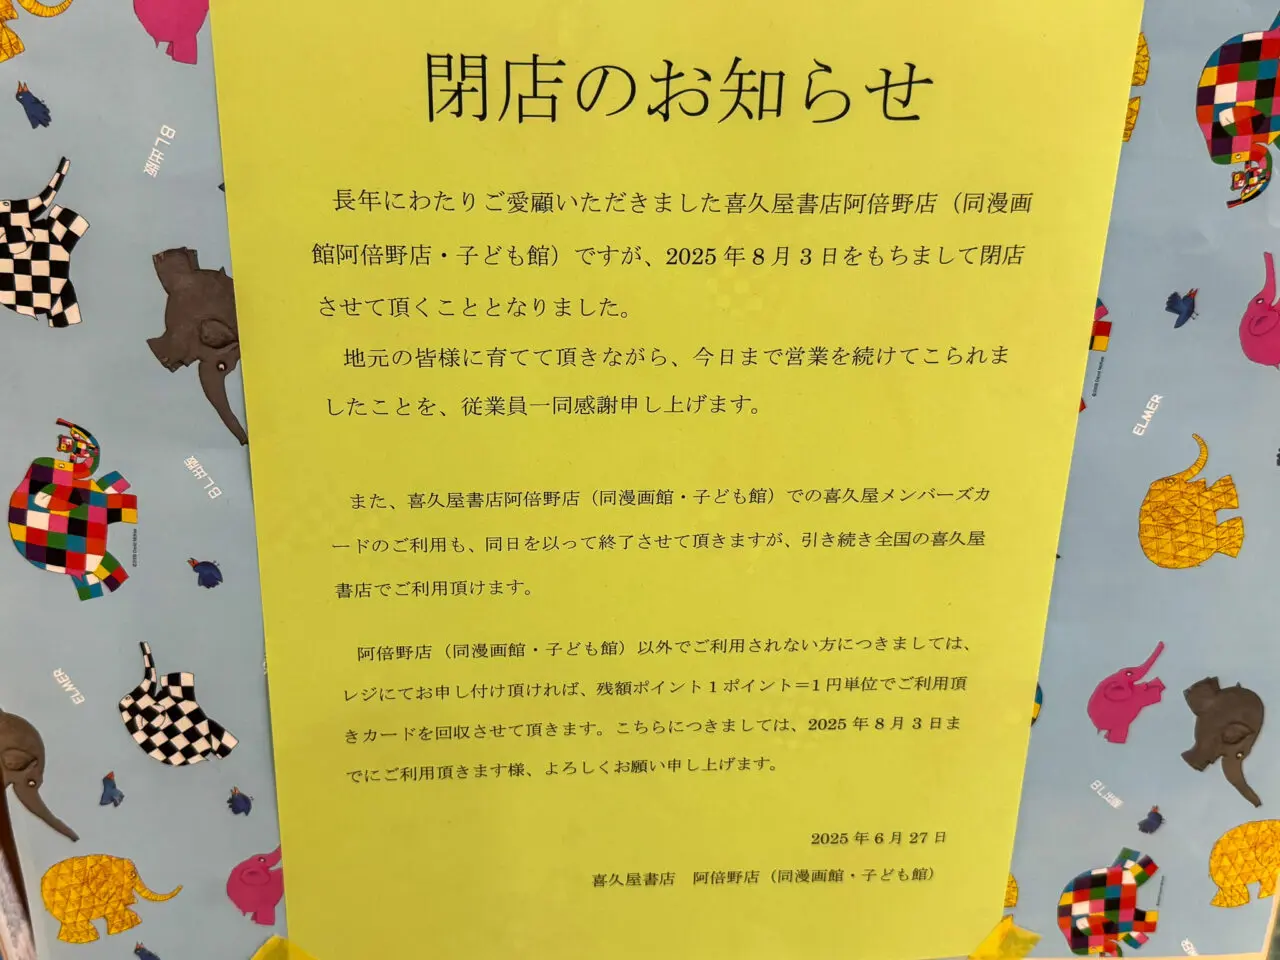 閉店のお知らせ
長年にわたりご愛顧いただきました喜久屋書店阿倍野店（同漫画
館阿倍野店・子ども館）ですが、2025年8月3日をもちまして閉店
させて頂くこととなりました。
地元の皆様に育てて頂きながら、今日まで営業を続けてこられま
したことを、従業員一同感謝申し上げます。
また、喜久屋書店阿倍野店（同漫画館・子ども館）での喜久屋メンバーズカ
ードのご利用も、同日を以って終了させて頂きますが、引き続き全国の喜久屋
書店でご利用頂けます。
阿倍野店（同漫画館・子ども館）以外でご利用されない方につきましては、
レジにてお申し付け頂ければ、残額ポイント1ポイント＝1円単位でご利用頂
きカードを回収させて頂きます。こちらにつきましては、2025年8月3日ま
でにご利用頂きます様、よろしくお願い申し上げます。
2025年6月27日
喜久屋書店　阿倍野店（同漫画館・子ども館）
BL出版
BL出版
ELMER
ELMER
BL出版
ELMER